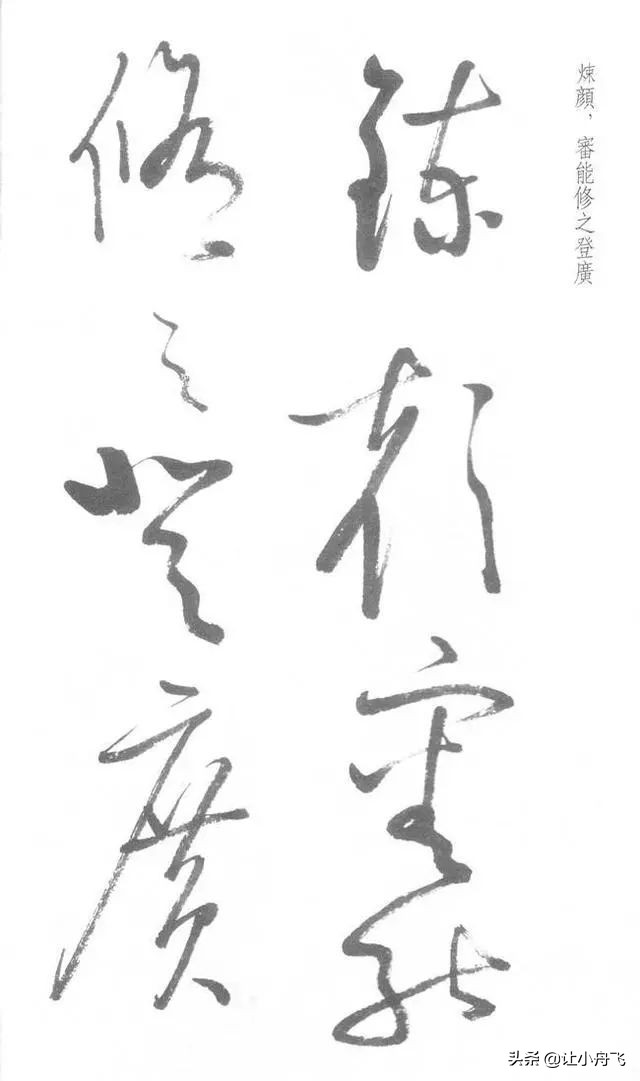 煉顔，審能修之登廣
鍊顔審能
脩之登廣
头条 @让小舟飞